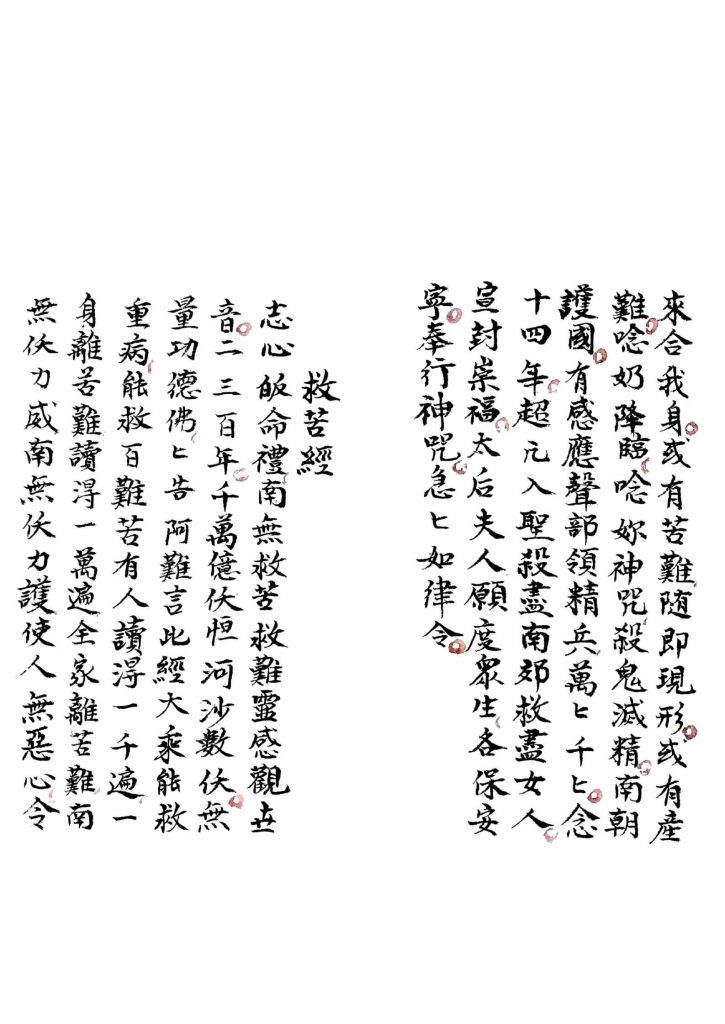 來合我身或有苦難随即現形或有産
難唸奶降臨唸妳神咒殺鬼滅精南朝
護國有感應聲部領精兵萬匕千匕念
十四年超元入聖殺盡南郊救盡女人
宣封崇福太后夫人願度衆生各保安
寧奉行神咒急匕如律令
救苦經
志心皈命禮南無救苦救難靈感觀世
音二三百年千萬億伏恒河沙數伏無
量功德佛匕告阿難言此經大乘能救
重病能救百難苦有人讀淂一千遍一
身離苦難讀淂一萬遍全家離苦難南
無伏力威南無伏力護使人無惡心令